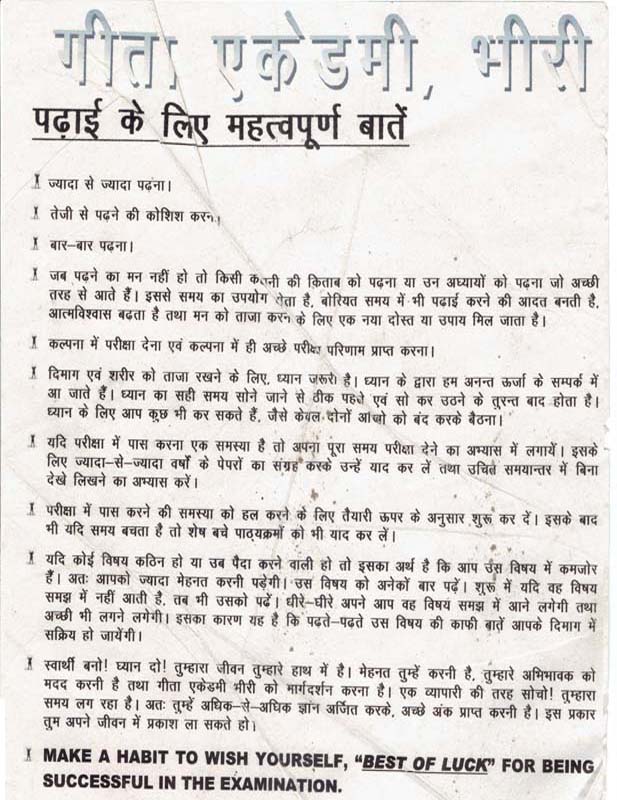 गीता एकेडमी, भीरी
पढ़ाई के लिए महत्वपूर्ण बातें
ज्यादा से ज्यादा पढ़ना।
तेजी से पढ़ने की कोशिश करना
बार–बार पढ़ना।
जब पढ़ने का मन नहीं हो तो किसी की किताब को पढ़ना या उन अध्यायों को पढ़ना जो अच्छी
तरह से आते हैं। इससे समय का उपयोग होता है, बोरियत समय में भी पढाई करने की आदत बनती है,
आत्मविश्वास बढता है तथा मन को ताजा करने के लिए एक नया दोस्त या उपाय मिल जाता है।
कल्पना में परीक्षा देना एवं कल्पना में ही अच्छे परीक्षा परिणाम प्राप्त करना।
दिमाग एवं शरीर को ताजा रखने के लिए, ध्यान जरूरी है। ध्यान के द्वारा हम अनन्त ऊर्जा के सम्पर्क में
आ जाते हैं। ध्यान का सही समय सोने जाने से ठीक पहले एवं सो कर उठने के तुरन्त बाद होता है।
ध्यान के लिए आप कुछ भी कर सकते हैं, जैसे केवल दोनों आंखो को बंद करके बैठना।
यदि परीक्षा में पास करना एक समस्या है तो अपना पूरा समय परीक्षा देने का अभ्यास में लगायें। इसके
लिए ज्यादा–से–ज्यादा वर्षो के पेपरों का संग्रह करके उन्हें याद कर लें तथा उचित समयान्तर में बिना
देखे लिखने का अभ्यास करें।
परीक्षा में पास करने की समस्या को हल करने के लिए तैयारी ऊपर के अनुसार शुरू कर दें। इसके बाद
भी यदि समय बचता है तो शेष बचे पाठ्यक्रमों को भी याद कर लें।
यदि कोई विषय कठिन हो या उब पैदा करने वाली हो तो इसका अर्थ है कि आप उस विषय में कमजोर
हैं। अतः आपको ज्यादा मेहनत करनी पड़ेगी। उस विषय को अनेकों बार पढ़ें। शुरू में यदि वह विषय
समझ में नहीं आती है, तब भी उसको पढें। धीरे–धीरे अपने आप वह विषय समझ में आने लगेगी तथा
अच्छी भी लगने लगेगी। इसका कारण यह है कि पढ़ते–पढ़ते उस विषय की काफी बातें आपके दिमाग में
सक्रिय हो जायेंगी।
स्वार्थी बनो! ध्यान दो! तुम्हारा जीवन तुम्हारे हाथ में है। मेहनत तुम्हें करनी है, तुम्हारे अभिभावक को
मदद करनी है तथा गीता एकेडमी भीरी को मार्गदर्शन करना है। एक व्यापारी की तरह सोचो! तुम्हारा
समय लग रहा है। अतः तुम्हें अधिक–से–अधिक ज्ञान अर्जित करके, अच्छे अंक प्राप्त करनी है। इस प्रकार
तुम अपने जीवन में प्रकाश ला सकते हो।
MAKE A HABIT TO WISH YOURSELF, “BEST OF LUCK” FOR BEING
SUCCESSFUL IN THE EXAMINATION.